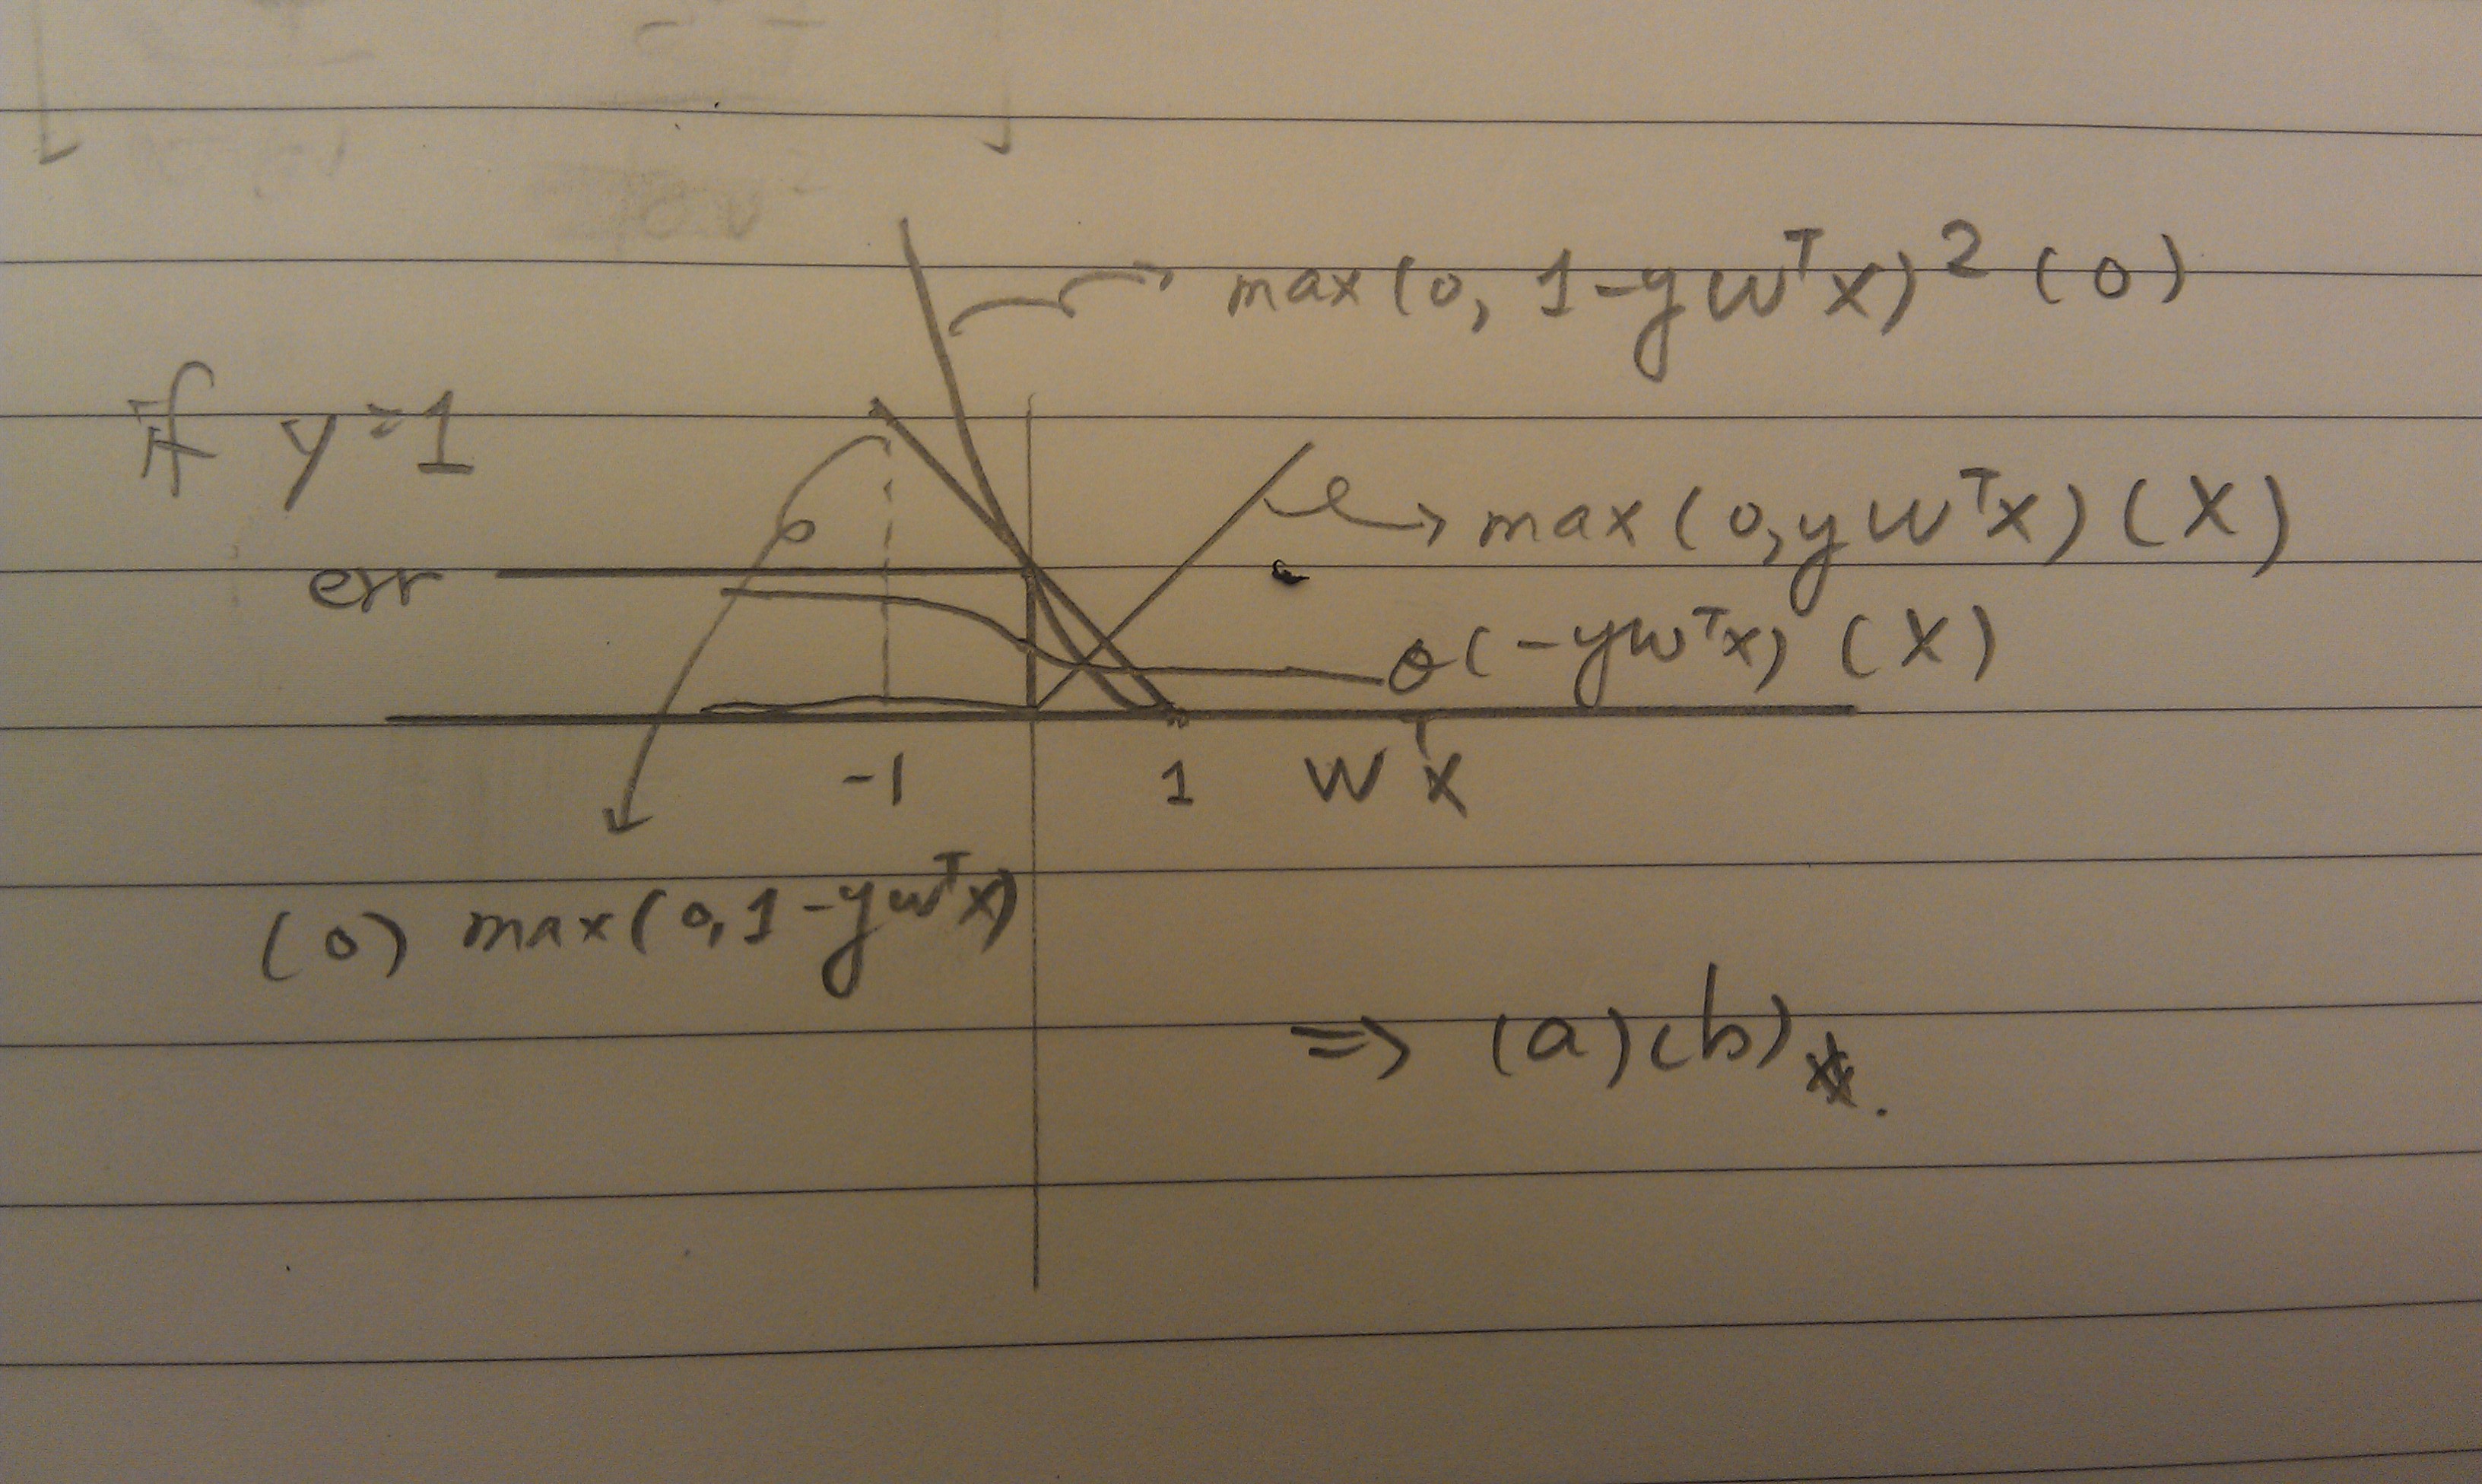 max(0, 1-ywᵀx)² (O)
if y=1
max(0, ywᵀx) (X)
err
θ(-ywᵀx) (X)
-1 1 wᵀx
(O) max(0, 1-ywᵀx)
⇒ (a)(b)